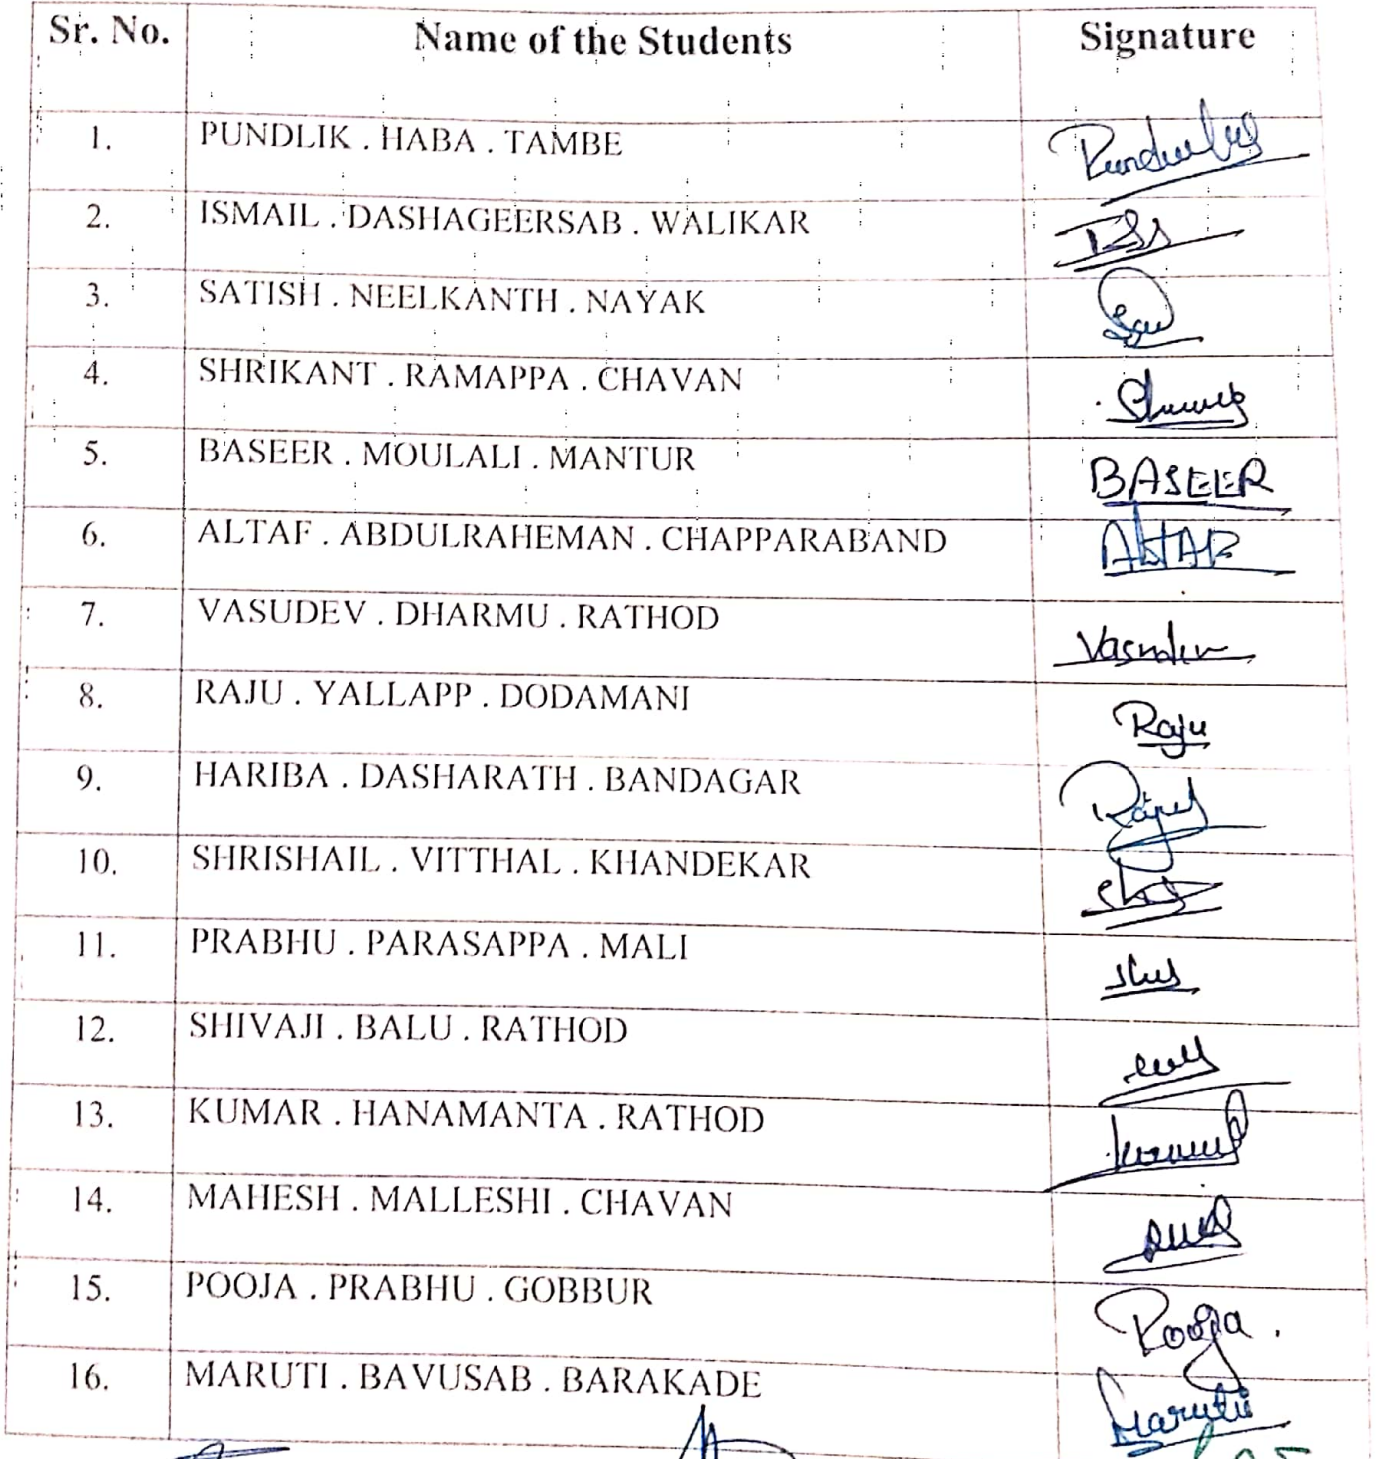 Sr. No. Name of the Students Signature
1. PUNDLIK . HABA . TAMBE
2. ISMAIL . DASHAGEERSAB . WALIKAR
3. SATISH . NEELKANTH . NAYAK
4. SHRIKANT . RAMAPPA . CHAVAN
5. BASEER . MOULALI . MANTUR BASEER
6. ALTAF . ABDULRAHEMAN . CHAPPARABAND
7. VASUDEV . DHARMU . RATHOD
8. RAJU . YALLAPP . DODAMANI Raju
9. HARIBA . DASHARATH . BANDAGAR
10. SHRISHAIL . VITTHAL . KHANDEKAR
11. PRABHU . PARASAPPA . MALI
12. SHIVAJI . BALU . RATHOD
13. KUMAR . HANAMANTA . RATHOD
14. MAHESH . MALLESHI . CHAVAN
15. POOJA . PRABHU . GOBBUR Pooja .
16. MARUTI . BAVUSAB . BARAKADE Maruti